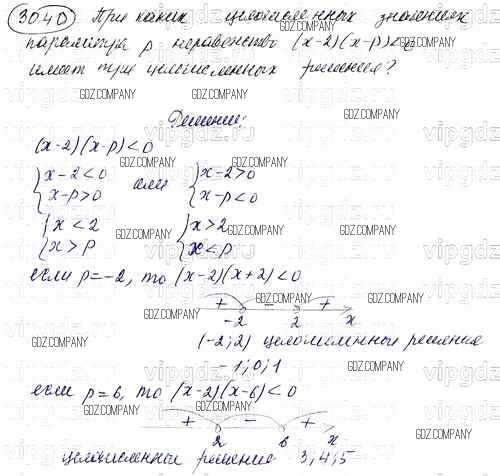 30.40) При каких целочисленных значениях
параметра p неравенство (x-2)(x-p)<0
имеет три целочисленных решения?
Решение:
(x-2)(x-p)<0
{x-2<0 или {x-2>0
{x-p>0 {x-p<0
{x<2 {x>2
{x>p {x<p
если p=-2, то (x-2)(x+2)<0
+ - +
-2 2 x
(-2;2) целочисленные решения
-1;0;1
если p=6, то (x-2)(x-6)<0
+ - +
2 6 x
целочисленные решения 3;4;5